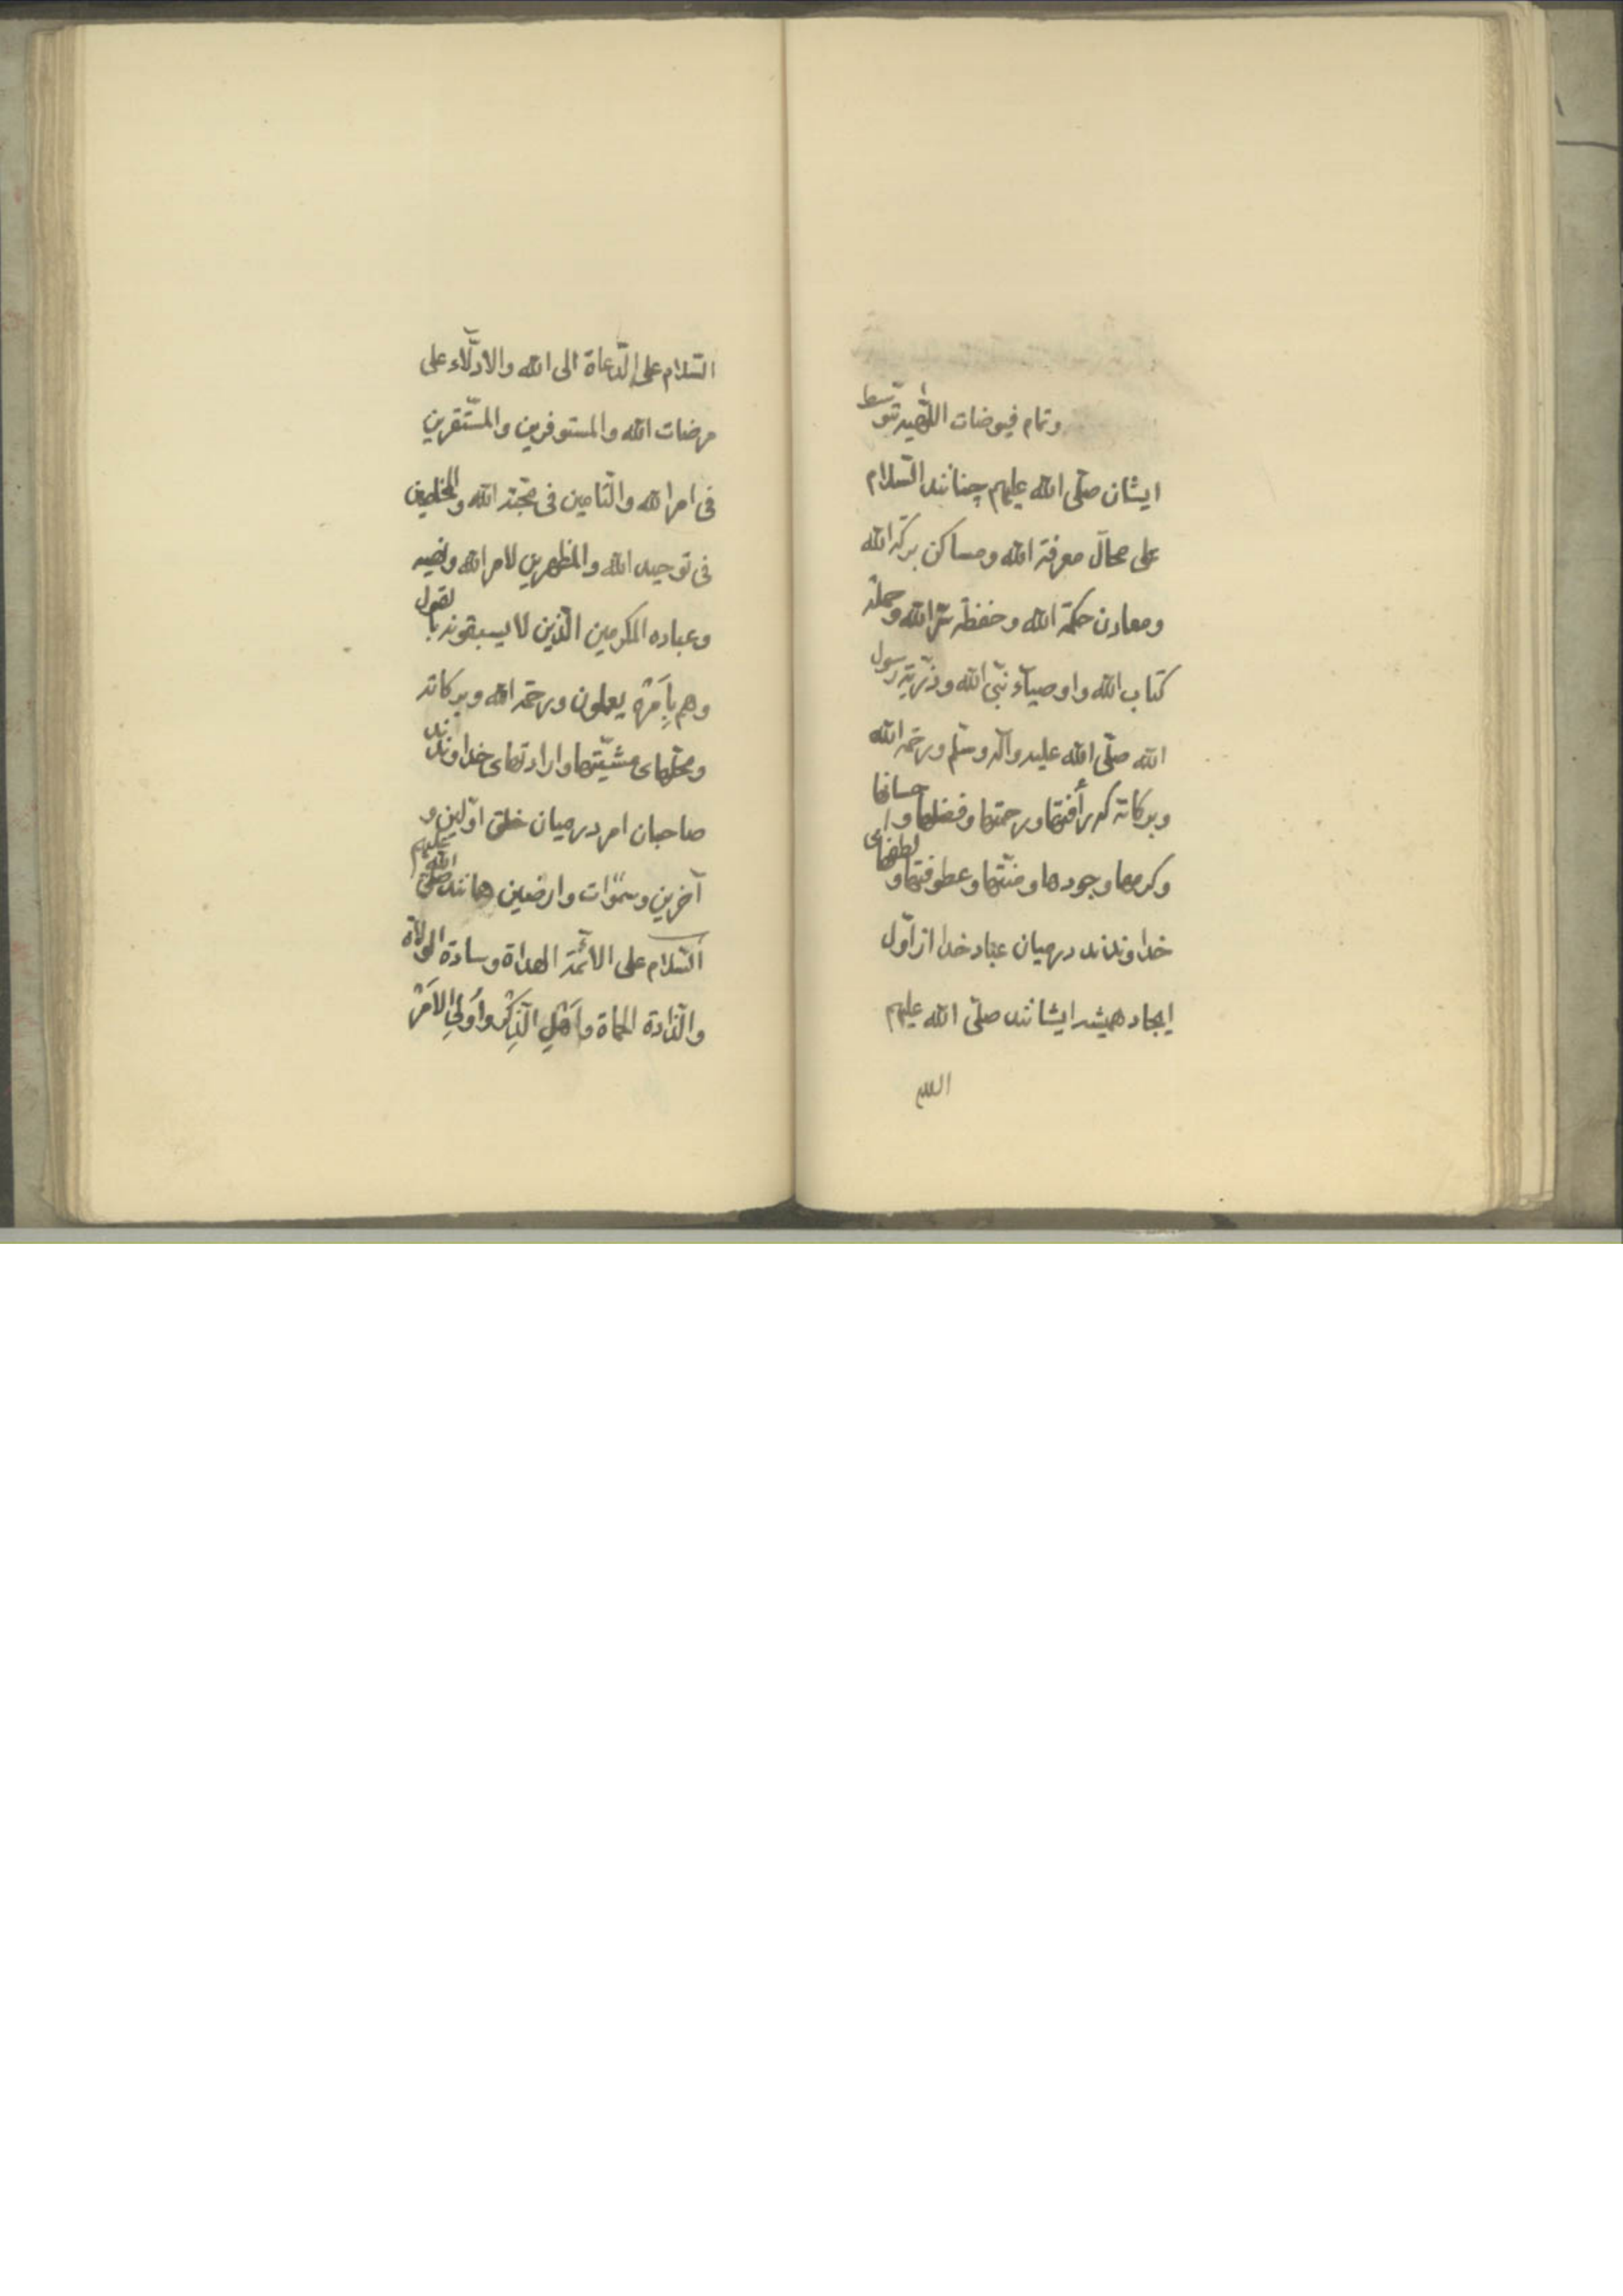 وتمام فیوضات اللهیه بتوسط
ایشان صلّی الله علیهم چنانند السّلام
علی محالّ معرفة الله ومساکن برکة الله
ومعادن حکمة الله وحفظة سرّ الله وحملة
کتاب الله واوصیآء نبیّ الله وذرّیّة رسول
الله صلّی الله علیه وآله وسلّم ورحمة الله
وبرکاته که رأفتها ورحمتها وفضلها واحسانها
وکرمها وجودها ومنّتها وعطوفتها ولطفهای
خداوندند در میان عباد خدا از اوّل
ایجاد همیشه ایشانند صلّی الله علیهم
السلام علی الدّعاة الی الله والادلّآء علی
مرضات الله والمستوفرین والمستّقرین
فی امر الله والتّامین فی محبّة الله والمخلصین
فی توحید الله والمظهرین لامر الله ونهیه
وعباده المکرمین الّذین لا یسبقونه بالقول
وهم بِاَمْرِه یعملون ورحمة الله وبرکاته
ومحلّهای مشیّتها وارادتهای خداوندند
صاحبان امر در میان خلق اوّلین و
آخرین وسمٰوات وارضین همانند صلّی الله علیهم
السّلام علی الائمّة الهداة وسادة الولاة
والذّادة الحماة وَاَهْلِ الذِّکْرِ وَاُولِی الاَمْرْ